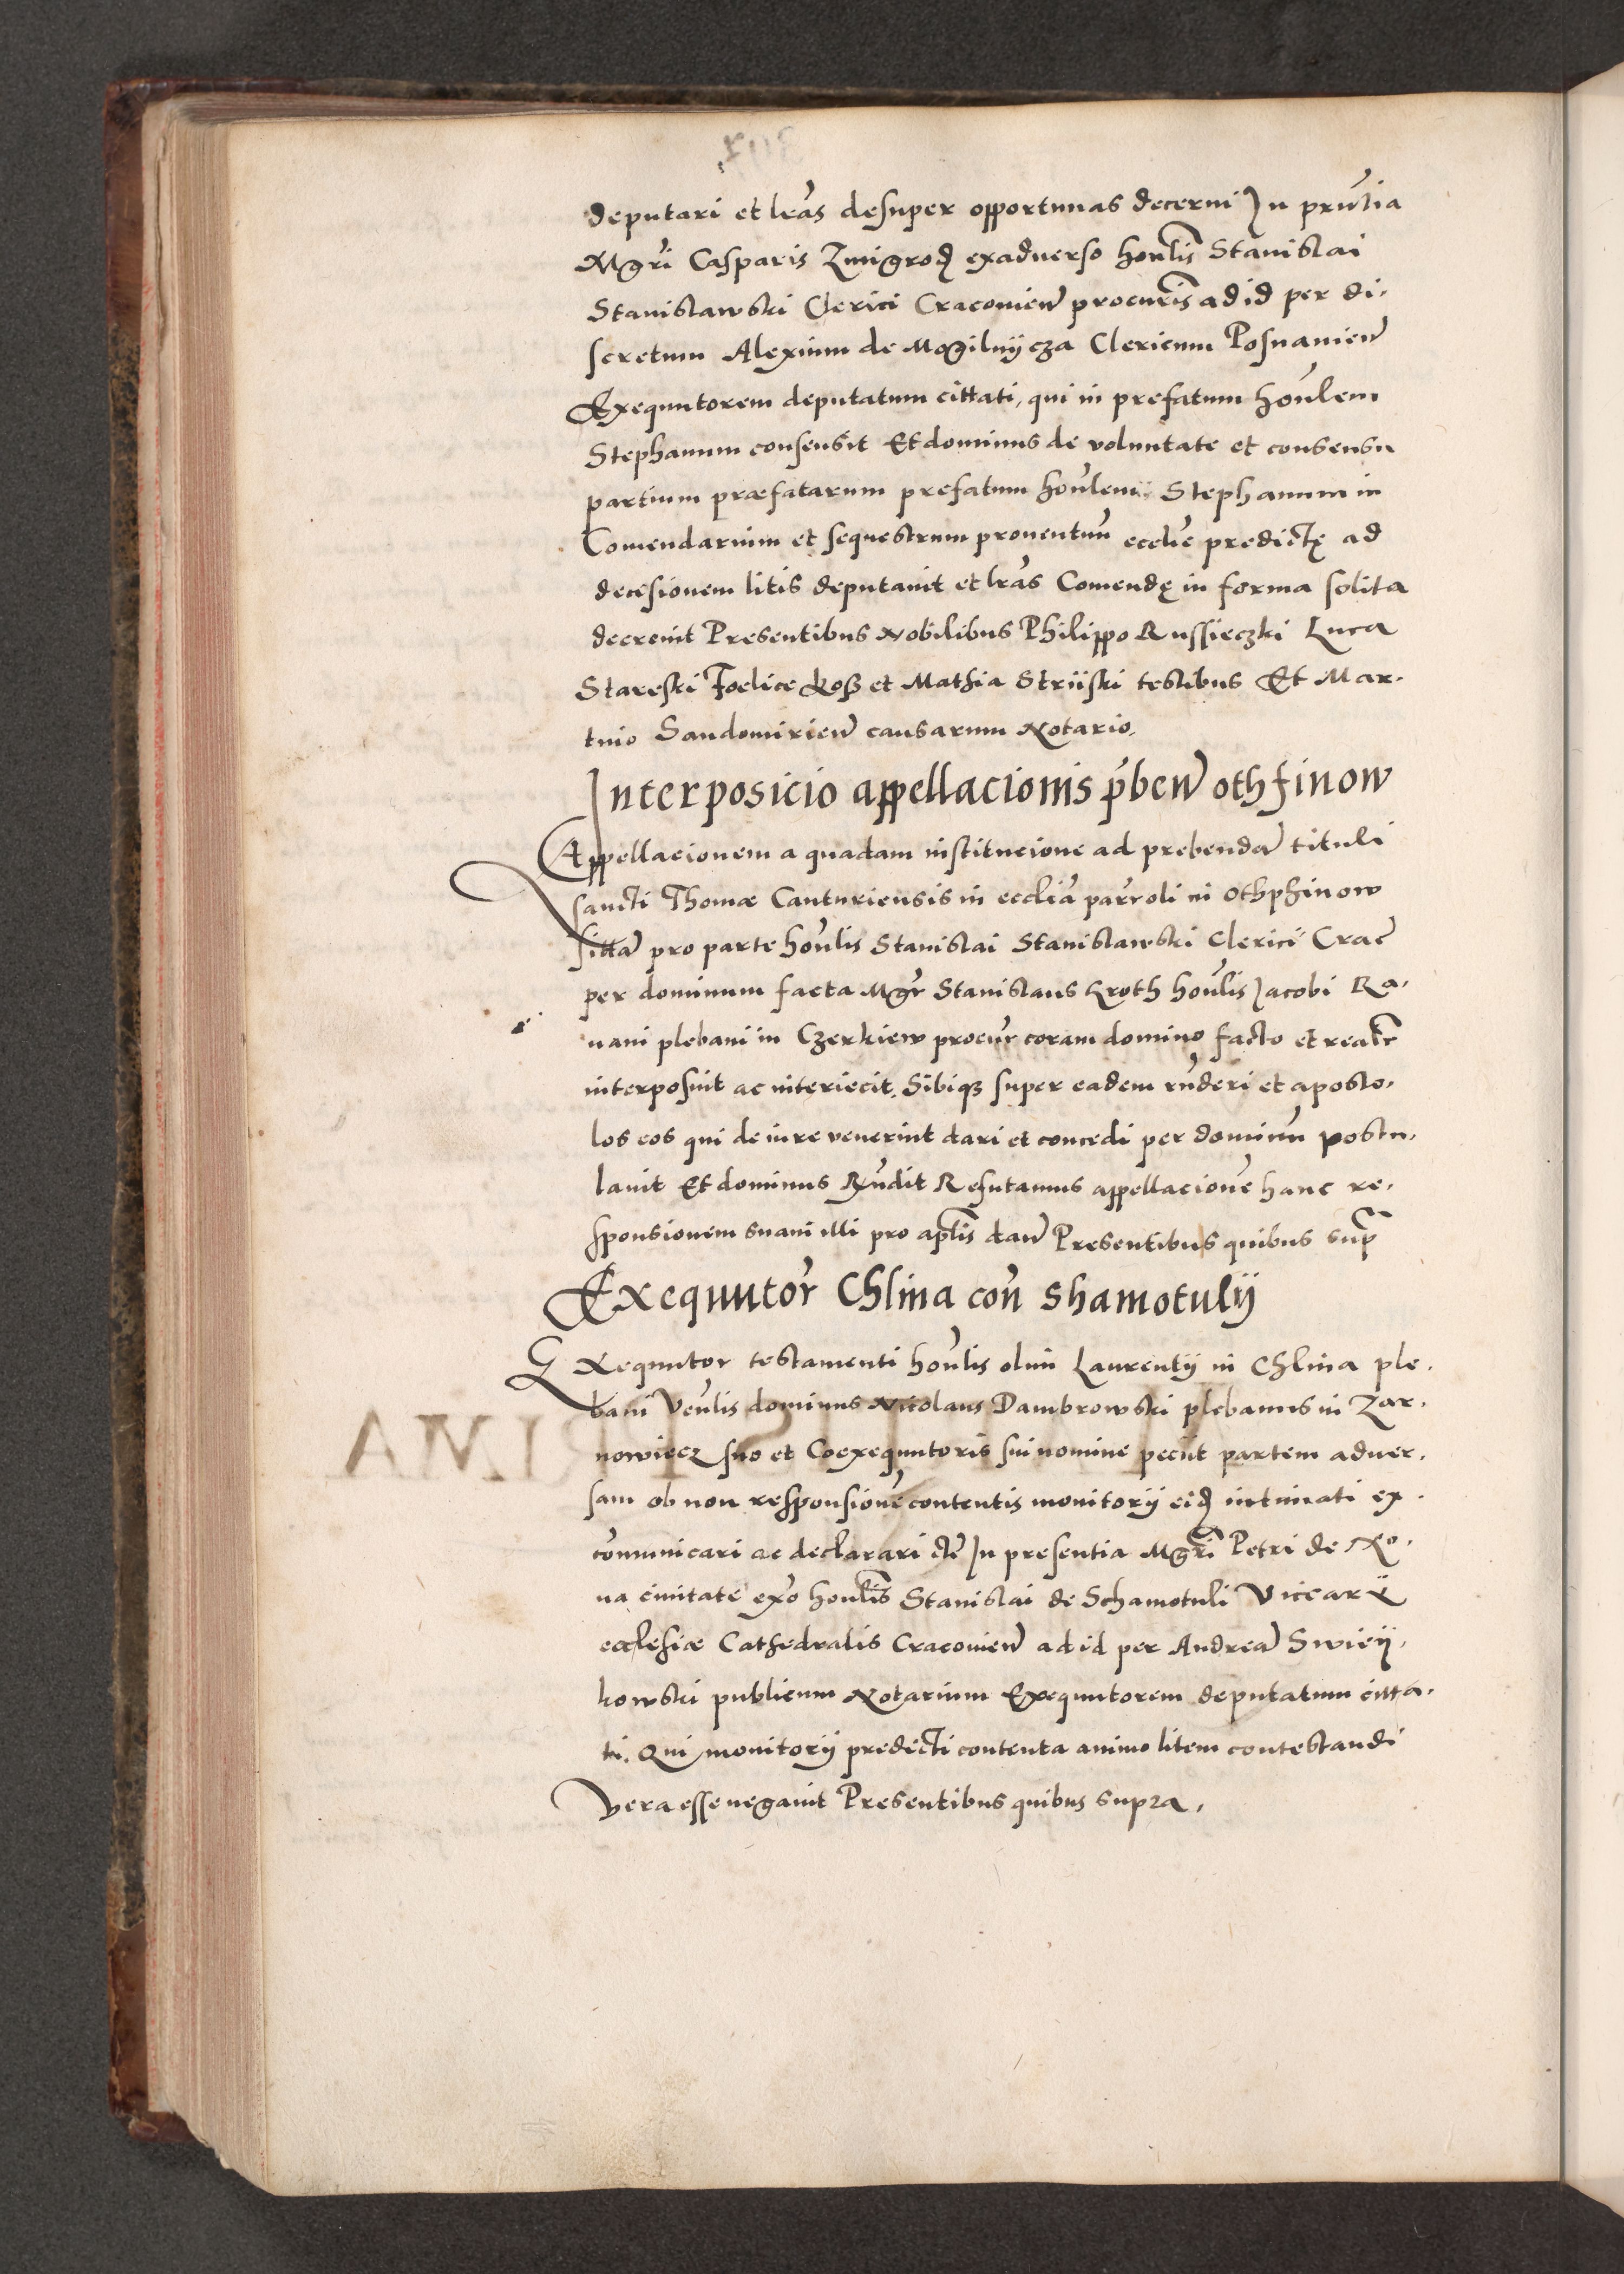 deputari et lr̃as desuper opportunas decerni In pñtia
Mgr̃i Casparis Zmigrod exaduerso hoñlis Stanislai
Stanislawski Clerici Cracovieñ procur̃is ad id per di,
scretum Alexium de Mogilnÿcza Clericum Posnanieñ
Exequutorem deputatum cittati, qui in prefatum hoñlem
Stephanum consensit Et dominus de voluntate et consensu
partium præfatarum prefatum hoñlem Stephanum in
Comendarium et sequestrum prouentuũ eccl̃ie predictę ad
decesionem litis deputauit et lr̃as Comendę in forma solita
decreuit Presentibus Nobilibus Philippo Russieczki Luca
Stareski Foelice Koss et Mathia Strÿski testibus Et Mar,
tino Sandomirieñ causarum Notario.
Interposicio appellacionis p̃beñ othfinow
Appellacionem a quadam institucione ad prebendã tituli
sancti Thomæ Canturiensis in ecclĩa parroli in Othphinow
sittã pro parte hoñlis Stanislai Stanislawski Clerici Crac̃
per dominum facta Mgr̃ Stanislaus Kroth hoñlis Jacobi Ra,
nani plebani in Czerkiew procur̃ coram domino facto et realr̃
interposuit ac interiecit, Sibiqȝ super eadem rñderi et aposto,
los eos qui de iure venerint dari et concedi per dominũ postu,
lauit Et dominus Rñdit Refutamus appellacionẽ hanc re,
sponsionem suam illi pro aplis̃ dañ Presentibus quibus sup̃
Exequutor̃ Chlina coñ Shamotulÿ
Exequutor testamenti hoñlis olim Laurentÿ in Chlina ple,
bani Veñlis dominus Nicolaus Dambrowski plebanus in Zar,
nowiecz suo et Coexequutoris sui nomine peciit partem aduer,
sam ob non responsionẽ contentis monitorÿ eid intimati ex,
comunicari ac declarari etc̃ In presentia Mgr̃i Petri de No,
ua ciuitate exo̊ hoñlis Stanislai de Schamotuli Vicarÿ
ecclesiæ Cathedralis Cracovieñ ad id per Andreã Swieÿ,
kowski publicum Notarium Exequutorem deputatum citta,
ti. Qui monitorÿ predicti contenta animo litem contestandi
vera esse negauit Presentibus quibus supra,